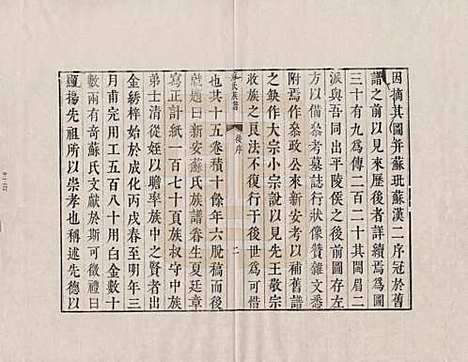 因摘其圖并蘇玭蘇漢二序冠於舊
譜之前以見来歷後者詳續焉爲圖
三十有九爲傳二百二十其間眉二
派與吾同出平陵侯之後前圖存左
方以俻叅考墓誌行狀像贊雜文悉
附焉作叅政公来新安考以補舊譜
之缺作大宗小宗說以見先王敬宗
收族之良法不復行于後世爲可惜
蘇氏族譜
卷序
二
也其十五卷積十餘年六脫稿而
尅題曰新安蘇氏族譜春生夏廷章
寫正計紙一百八十頁族叔守中族
弟士清從姪以瞻率族之中賢者出
金綉梓始於成化丙戌春至明年三
月甫完用工五百八十用白金數十
數兩有奇蘇氏文獻於斯可徵禮曰
顯揚先祖所以崇孝也其先德以